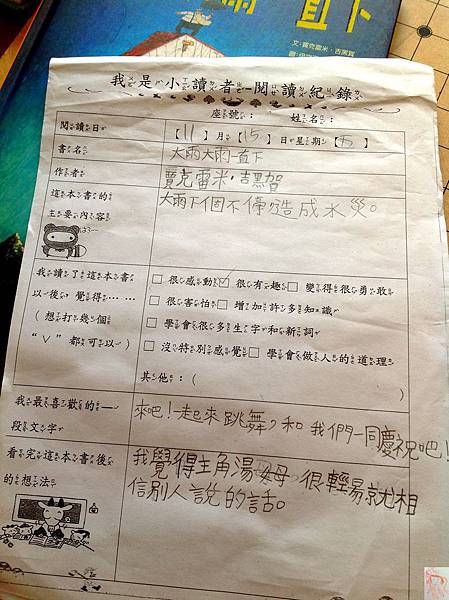 雨 直下
文·賈克雷米·吉黑賀
我是小讀者-閱讀紀錄
座號： 姓名：
閱讀日 【11】月【15】日星期【五】
書名 大雨大雨一直下
作者 賈克雷米·吉黑賀
這本書的 大雨下個不停造成水災。
主要內容
我讀了這本書 □很感動☑很有趣□變得很勇敢
以後，覺得…… □很害怕□增加許多知識
（想打幾個 □學會很多生字和新詞
“ˇ”都可以） □沒特別感覺□學會做人的道理
其他：（ ）
我最喜歡的一 來吧!一起來跳舞，和我們一同慶祝吧!
段文字
看完這本書後 我覺得主角湯姆很輕易就相
的想法 信別人說的話。